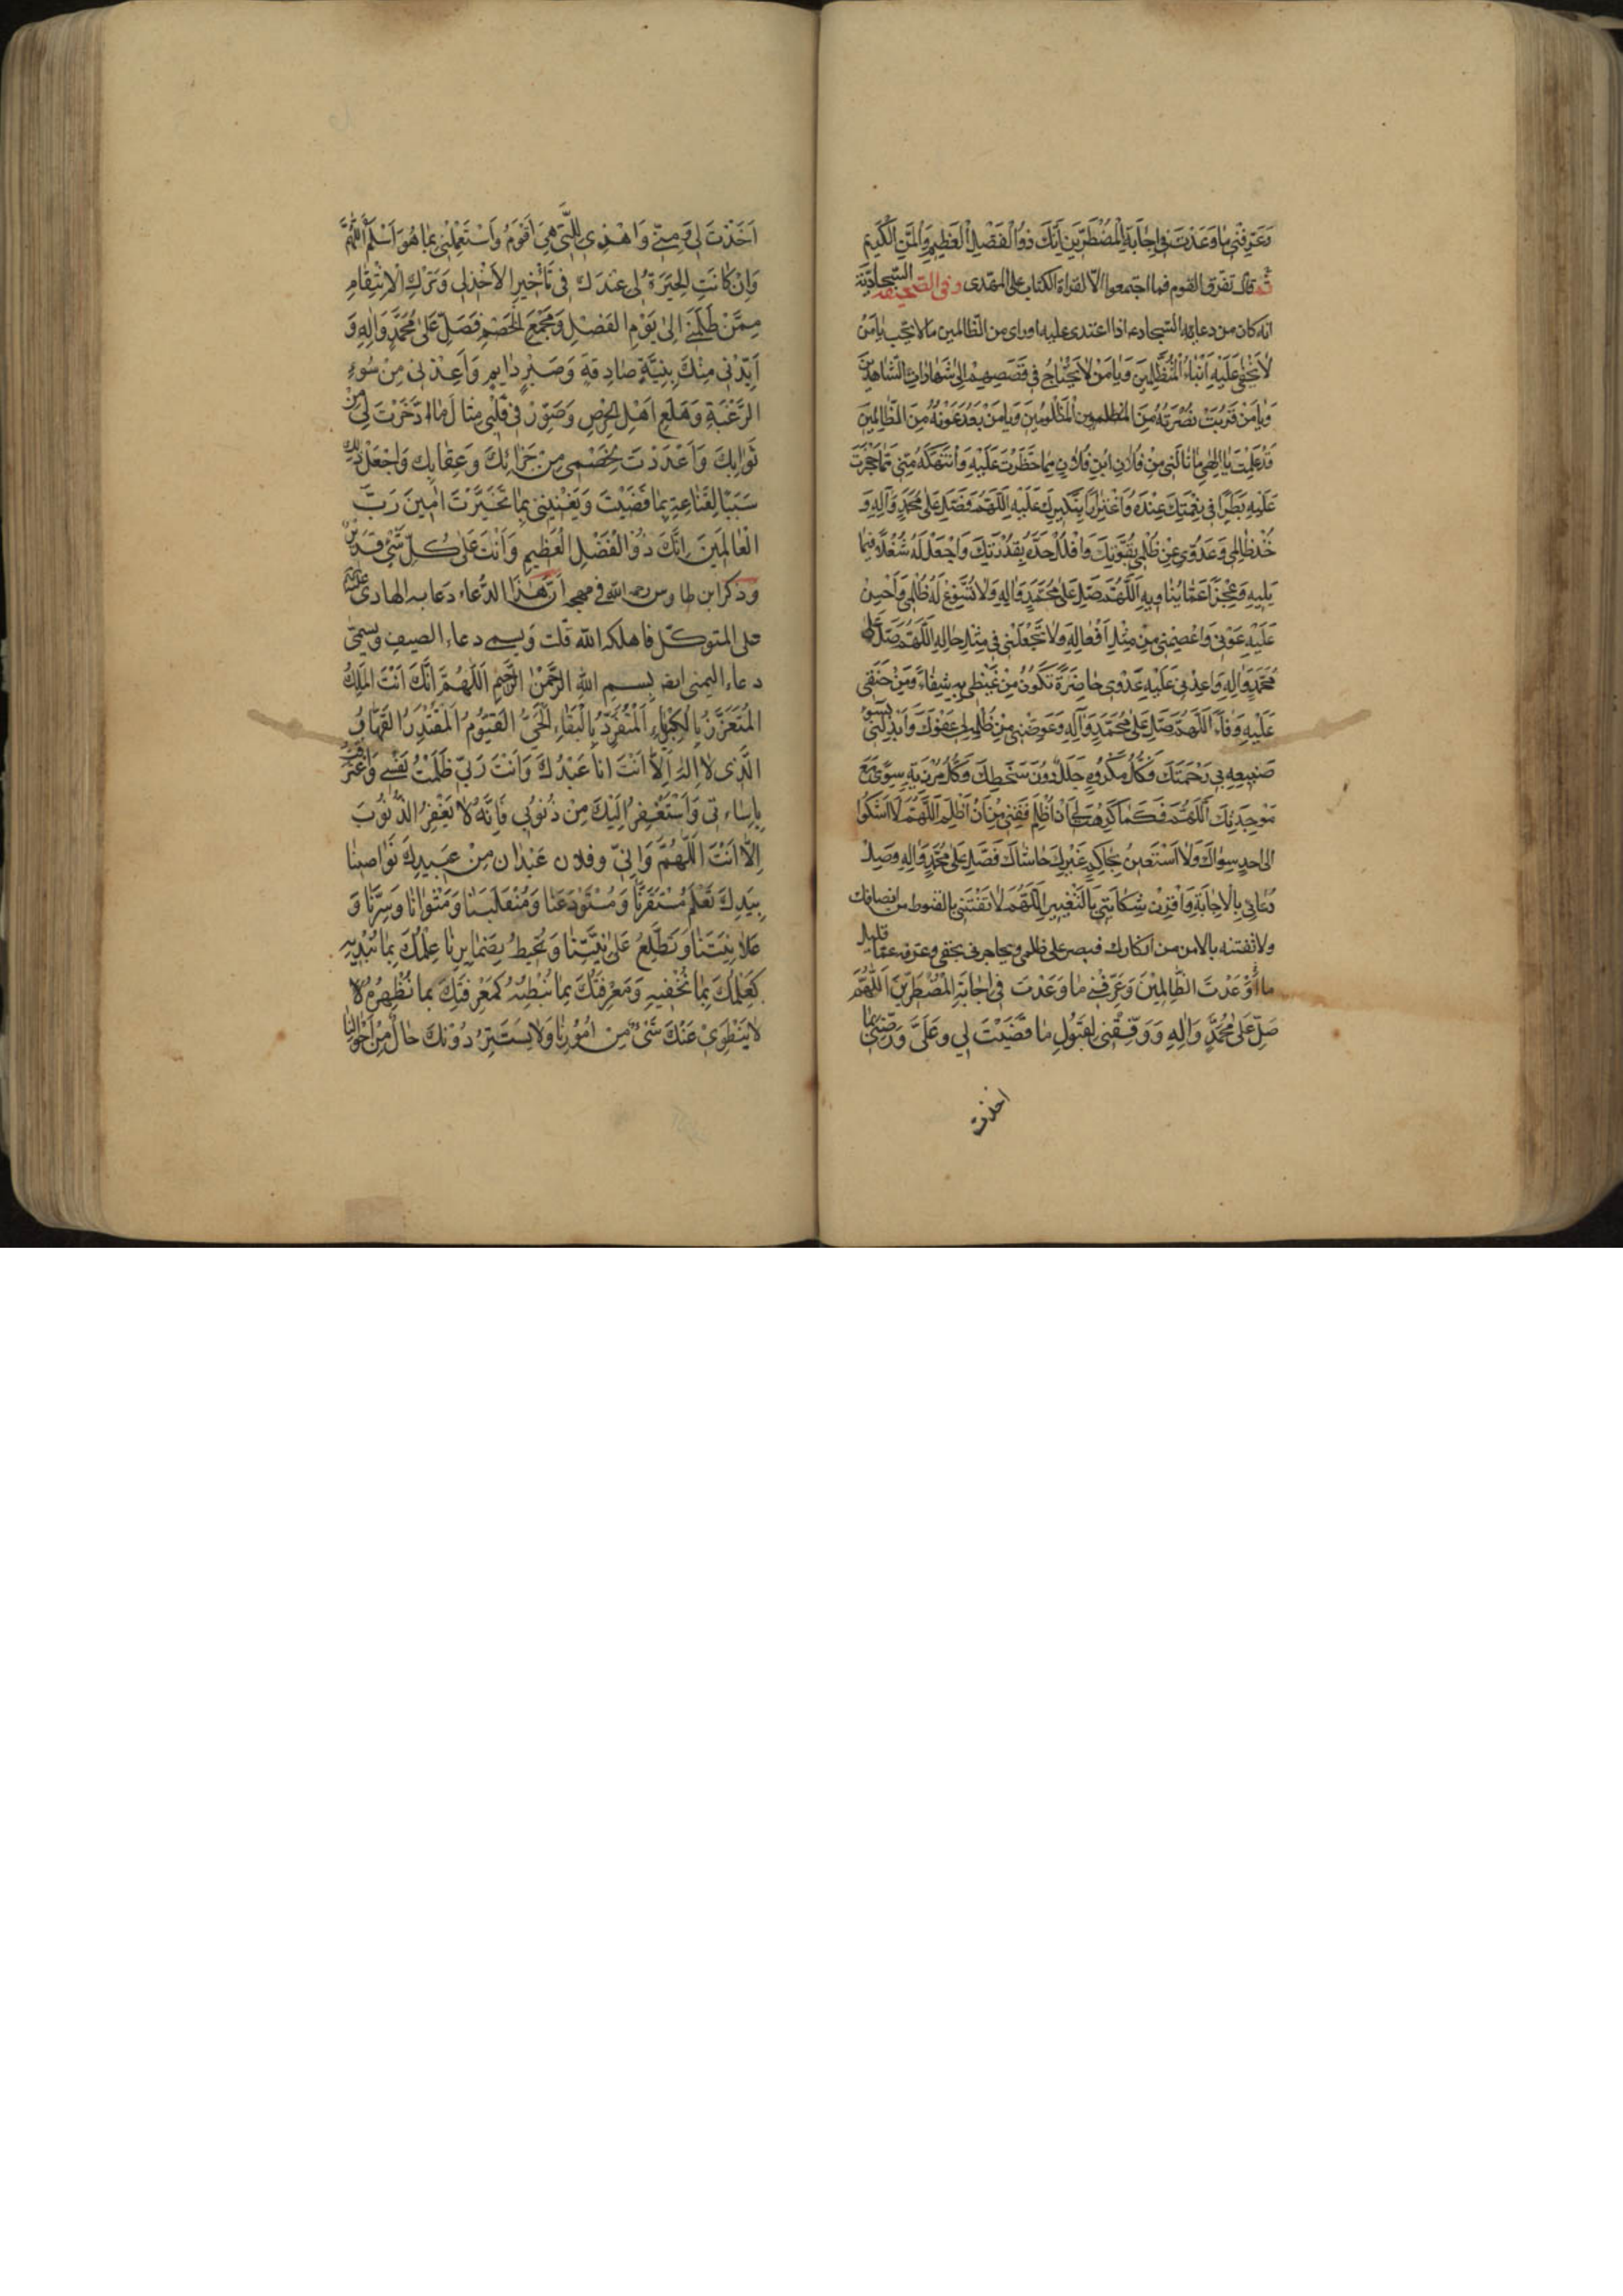 وَعَرِّفْنِي مَا وَعَدْتَ فِي اِجَابَةِ الْمُضْطَرِّينَ اِنَّكَ ذُو الْفَضْلِ الْعَظِيمِ وَالْمَنِّ الْكَرِيمِ
ثم قال تفرق القوم فما اجتمعوا الّا لقراة الكتاب على المهتدى وفى الصحيفة السجادية
انه كان من دعائه السجاد ع اذا اعتدى عليه او راى من الظالمين ما لا يحب يَا مَنْ
لَا يَخْفَى عَلَيْهِ اَنْبَاءُ الْمُتَظَلِّمِينَ وَيَا مَنْ لَا يَحْتَاجُ فِي قَصَصِهِمْ اِلَى شَهَادَاتِ الشَّاهِدِينَ
وَيَا مَنْ قَرُبَتْ نُصْرَتُهُ مِنَ الْمَظْلُومِينَ وَيَا مَنْ بَعُدَ عَوْنُهُ مِنَ الظَّالِمِينَ
قَدْ عَلِمْتَ يَا اِلٰهِي مَا نَالَنِي مِنْ فُلَانِ ابْنِ فُلَانٍ مِمَّا حَظَرْتَ عَلَيْهِ وَانْتَهَكَهُ مِنِّي مِمَّا حَجَرْتَ
عَلَيْهِ بَطَرًا فِي نِعْمَتِكَ عِنْدَهُ وَاغْتِرَارًا بِنَكِيرِكَ عَلَيْهِ اَللّٰهُمَّ فَصَلِّ عَلَى مُحَمَّدٍ وَآلِهِ وَ
خُذْ ظَالِمِي وَعَدُوِّي عَنْ ظُلْمِي بِقُوَّتِكَ وَافْلُلْ حَدَّهُ بِقُدْرَتِكَ وَاجْعَلْ لَهُ شُغْلًا فِيمَا
يَلِيهِ وَعَجْزًا عَمَّا يُنَاوِيهِ اَللّٰهُمَّ صَلِّ عَلَى مُحَمَّدٍ وَآلِهِ وَلَا تُسَوِّغْ لَهُ ظُلْمِي وَاَحْسِنْ
عَلَيْهِ عَوْنِي وَاعْصِمْنِي مِنْ مِثْلِ اَفْعَالِهِ وَلَا تَجْعَلْنِي فِي مِثْلِ حَالِهِ اَللّٰهُمَّ صَلِّ عَلَى
مُحَمَّدٍ وَآلِهِ وَاعِدْنِي عَلَيْهِ عَدْوَى حَاضِرَةً تَكُونُ مِنْ غَيْظِي بِهِ شِفَاءً وَمِنْ حَنَقِي
عَلَيْهِ وَفَاءً اَللّٰهُمَّ صَلِّ عَلَى مُحَمَّدٍ وَآلِهِ وَعَوِّضْنِي مِنْ ظُلْمِهِ لِي عَفْوَكَ وَاَبْدِلْنِي بِسُوءِ
صَنِيعِهِ بِي رَحْمَتَكَ فَكُلُّ مَكْرُوهٍ جَلَلٌ دُونَ سَخَطِكَ وَكُلُّ مُرْزِيَةٍ سِوًى مَعَ
مَوْجِدَتِكَ اَللّٰهُمَّ فَكَمَا كَرِهْتَ لِي اَنْ اُظْلَمَ فَقِنِي مِنْ اَنْ اَظْلِمَ اَللّٰهُمَّ لَا اَشْكُوا
الى احدٍ سِوَاكَ وَلَا اَسْتَعِينُ بِحَاكِمٍ غَيْرِكَ حَاشَاكَ فَصَلِّ عَلَى مُحَمَّدٍ وَآلِهِ وَصِلْ
دُعَائِي بِالْاِجَابَةِ وَاقْرِنْ شِكَايَتِي بِالتَّغْيِيرِ اَللّٰهُمَّ لَا تَفْتِنِّي بِالقنوط من انصافك
ولا تفتنه بالامن من انكارك فيصر على ظلمى ويحاجرنى بحقى وعرفه عمّا قليل
مَا اَوْعَدْتَ الظَّالِمِينَ وَعَرِّفْنِي مَا وَعَدْتَ فِي اِجَابَةِ الْمُضْطَرِّينَ اَللّٰهُمَّ
صَلِّ عَلَى مُحَمَّدٍ وَآلِهِ وَوَفِّقْنِي لِقَبُولِ مَا قَضَيْتَ لِي وَعَلَيَّ وَرَضِّنِي بِمَا
اخذت
اَخَذْتَ لِي وَمِنِّي وَاهْدِنِي لِلَّتِي هِيَ اَقْوَمُ وَاسْتَعْمِلْنِي بِمَا هُوَ اَسْلَمُ اَللّٰهُمَّ
وَاِنْ كَانَتِ الْخِيَرَةُ لِي عِنْدَكَ فِي تَأْخِيرِ الْاَخْذِ لِي وَتَرْكِ الْاِنْتِقَامِ
مِمَّنْ ظَلَمَنِي اِلَى يَوْمِ الْفَصْلِ وَمَجْمَعِ الْخَصْمِ فَصَلِّ عَلَى مُحَمَّدٍ وَآلِهِ وَ
اَيِّدْنِي مِنْكَ بِنِيَّةٍ صَادِقَةٍ وَصَبْرٍ دَايِمٍ وَاَعِذْنِي مِنْ سُوءِ
الرَّغْبَةِ وَهَلَعِ اَهْلِ الْحِرْصِ وَصَوِّرْ فِي قَلْبِي مِثَالَ مَا ادَّخَرْتَ لِي مِنْ
ثَوَابِكَ وَاَعْدَدْتَ لِخَصْمِي مِنْ جَزَائِكَ وَعِقَابِكَ وَاجْعَلْ ذٰلِكَ
سَبَبًا لِقَنَاعَتِي بِمَا قَضَيْتَ وَيَغْنِينِي بِمَا تَخَيَّرْتَ اٰمِينَ رَبَّ
الْعَالَمِينَ اِنَّكَ ذُو الْفَضْلِ الْعَظِيمِ وَاَنْتَ عَلَى كُلِّ شَيْءٍ قَدِيرٌ
وذكر ابن طاوس رحمه الله فى مهجه اَنَّ هٰذَا الدُّعَاء دعا به الهادى عليه السلام
على المتوكّل فاهلكه الله قلت ويسمى دعاء الصيف ويسمى
دعاء اليمنى ايضا بسم الله الرَّحْمٰنِ الرَّحِيمِ اَللّٰهُمَّ اِنَّكَ اَنْتَ الْمَلِكُ
الْمُتَعَزِّزُ بِالْكِبْرِيَاءِ الْمُتَفَرِّدُ بِالْبَقَاءِ الْحَيُّ الْقَيُّومُ الْمُقْتَدِرُ الْقَهَّارُ
الَّذِي لَا اِلٰهَ اِلَّا اَنْتَ اَنَا عَبْدُكَ وَاَنْتَ رَبِّي ظَلَمْتُ نَفْسِي وَاعْتَرَفْتُ
بِاِسَاءَتِي وَاَسْتَغْفِرُ اِلَيْكَ مِنْ ذُنُوبِي فَاِنَّهُ لَا يَغْفِرُ الذُّنُوبَ
اِلَّا اَنْتَ اَللّٰهُمَّ وَاِنِّي وفلان عَبْدَانِ مِنْ عَبِيدِكَ نَوَاصِينَا
بِيَدِكَ تَعْلَمُ مُسْتَقَرَّنَا وَمُسْتَوْدَعَنَا وَمُنْقَلَبَنَا وَمَثْوَانَا وَسِرَّنَا وَ
عَلَانِيَتَنَا وَتَطَّلِعُ عَلَى نِيَّتِنَا وَتُحِيطُ بِضَمَايِرِنَا عِلْمُكَ بِمَا نُبْدِيهِ
كَعِلْمِكَ بِمَا نُخْفِيهِ وَمَعْرِفَتُكَ بِمَا نُبْطِنُهُ كَمَعْرِفَتِكَ بِمَا نُظْهِرُهُ لَا
لَا يَنْطَوِي عَنْكَ شَيْءٌ مِنْ اُمُورِنَا وَلَا يَسْتَتِرُ دُونَكَ حَالٌ مِنْ اَحْوَالِنَا